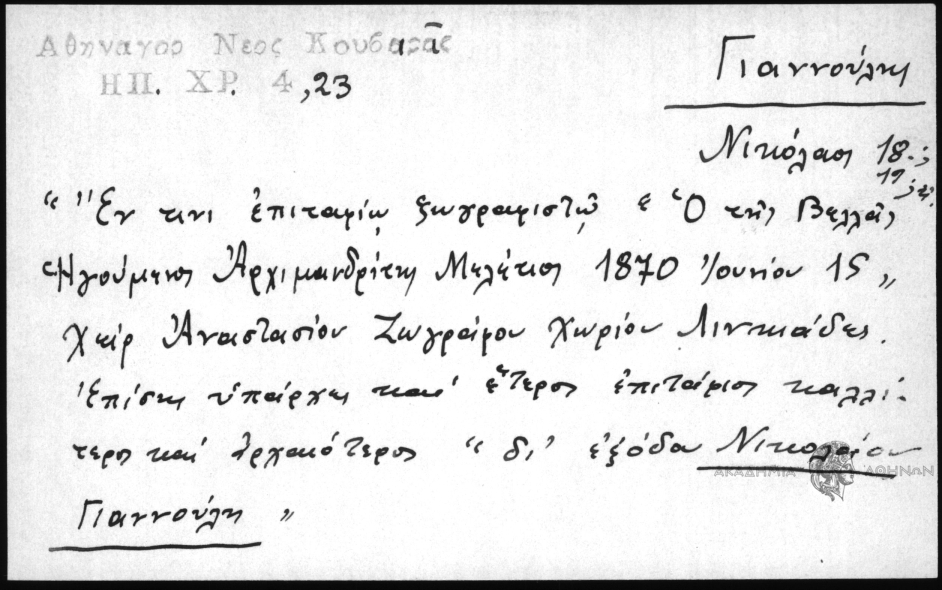 Αθηναγορ Νεος Κουβαρᾶς
ΗΠ. ΧΡ. 4,23
Γιαννούλης
Νικόλαος 18.;
19;
“ "Ἐν τινι ἐπιταφίῳ ζωγραφιστῷ « Ὁ τῆς Βελλᾶς
Ἡγούμενος Ἀρχιμανδρίτης Μελέτιος 1870 Ἰουνίου 15 „
Χείρ Ἀναστασίου Ζωγράφου χωρίου Λινκιάδες.
Ἐπίσης ὑπάρχει καί ἕτερος ἐπιτάφιος καλλί-
τερος καί ἀρχαιότερος “ δι' ἐξόδα Νικολάου
Γιαννούλη „
ΑΚΑΔΗΜΙΑ ΑΘΗΝΩΝ